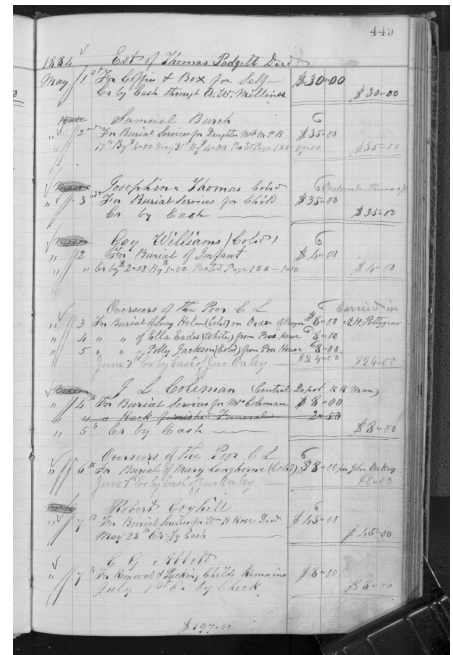 449
1884 Est of Thomas Padgett Decd
May 1st For Coffin & Box for Self $30-00
Cr by Cash through $30-00
Samuel Burch
" 2nd For Burial Services for Daughter $35-00
$35-00
Josephine Thomas Cold
" 3rd For Burial Services for Child $35-00
Cr by Cash $35-00
Gay Williams (Cold)
" 2 For Burial of Infant $4-00
$4-00
Overseers of the Poor C L
" 3 For Burial of Lucy (Cold) on Order of $8-00
" 4 " " of Ella (White) from Poor House 8-00
" 5 " " Polly Jackson (Cold) from Poor House 8-00
June 7th Cr by Cash $24-00
J L Coleman (Central Depot R R Man)
" 4th For Burial Services for Mr Coleman $8-00
Hack Funeral 2-50
" 5th Cr by Cash $8-00
Overseers of the Poor C L
" 6th For Burial of Mary Langhorne (Cold) $8-00 per John
June 7th Cr by Cash $8-00
Robert Coghill
" 7th For Burial Services for Wm H Rose Decd $45-00
May 28th Cr By Cash $45-00
C G Abbott
" 7th For Removal & Childs Remains $8-00
July 1st Cr by Check $8-00
$197-00